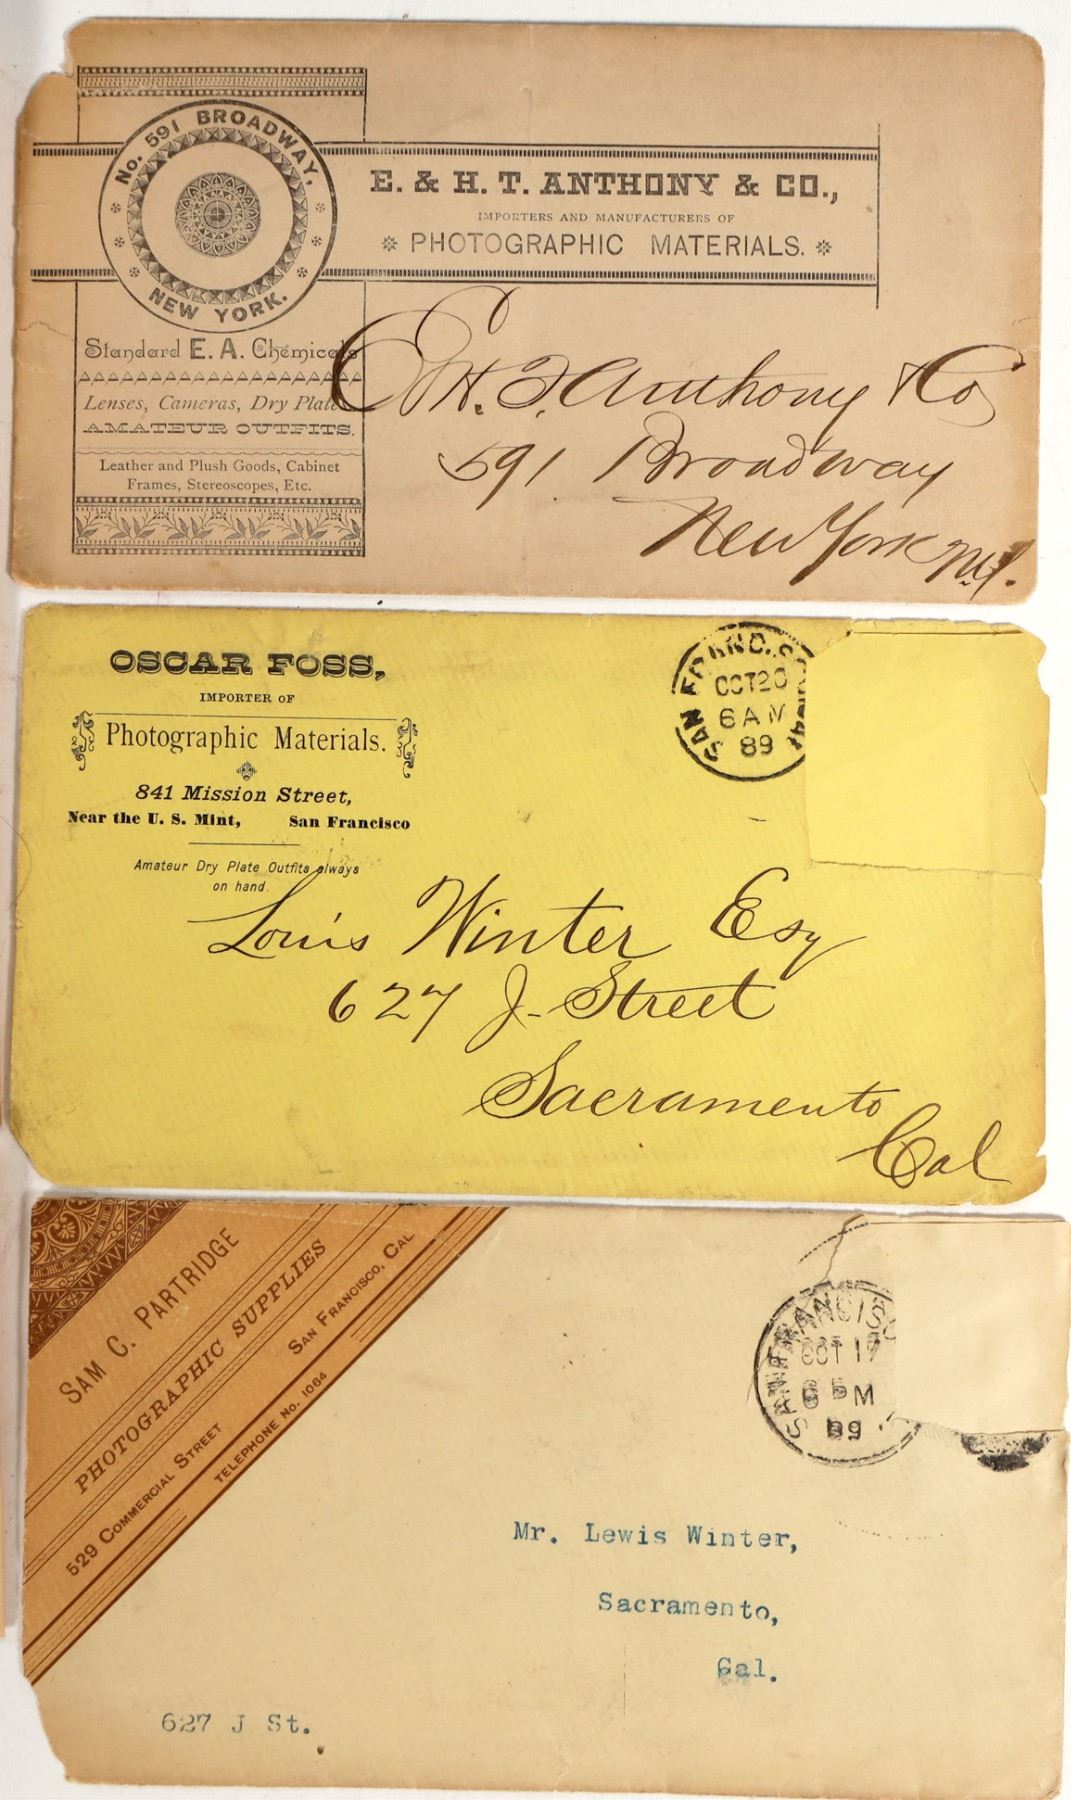 No. 591 BROADWAY,
NEW YORK.
E. & H. T. ANTHONY & CO.,
IMPORTERS AND MANUFACTURERS OF
PHOTOGRAPHIC MATERIALS.
Standard E. A. Chemicals
Lenses, Cameras, Dry Plate
AMATEUR OUTFITS.
Leather and Plush Goods, Cabinet
Frames, Stereoscopes, Etc.
E & H. T. Anthony & Co
591 Broadway
New York N.Y.
OSCAR FOSS,
IMPORTER OF
Photographic Materials.
841 Mission Street,
Near the U. S. Mint, San Francisco
Amateur Dry Plate Outfits always
on hand.
SAN FRANC
OCT 20
6 AM
89
Louis Winter Esq
627 J. Street
Sacramento
Cal
SAM C. PARTRIDGE
PHOTOGRAPHIC SUPPLIES
529 COMMERCIAL STREET SAN FRANCISCO, CAL
TELEPHONE No. 1064
SAN FRANCISC
OCT 17
6 PM
89
Mr. Lewis Winter,
Sacramento,
Cal.
627 J St.